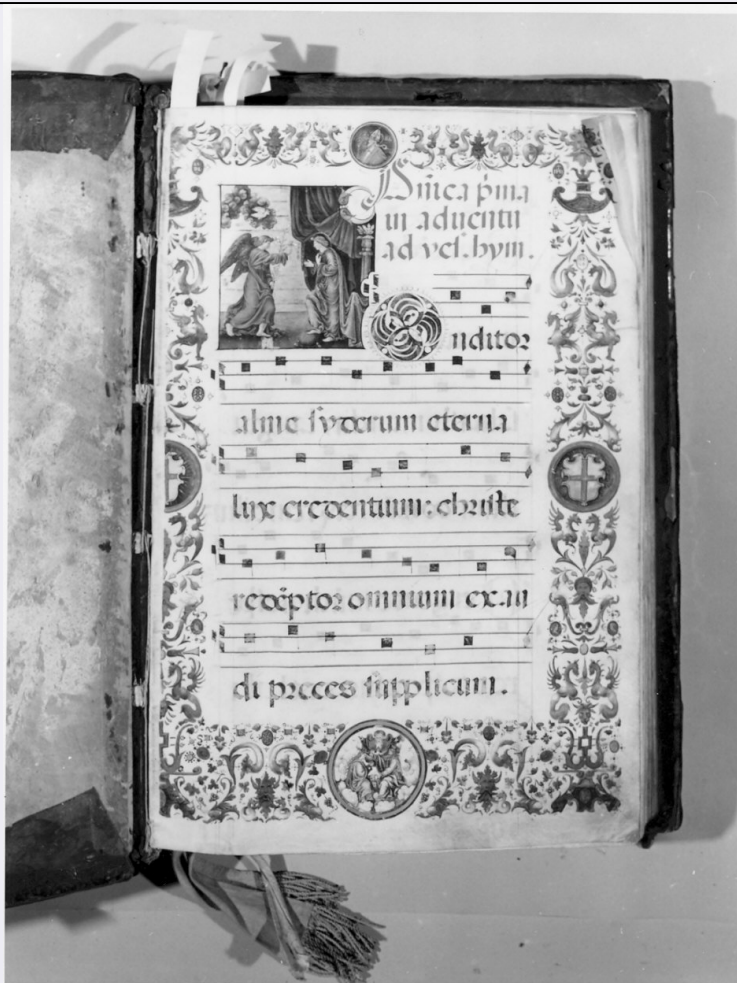 Dñica p̄ma
in aduentu
ad vesˑ hym.
Conditor
alme syderum eterna
lux credentium: christe
redēptor omnium exau
di preces supplicum.